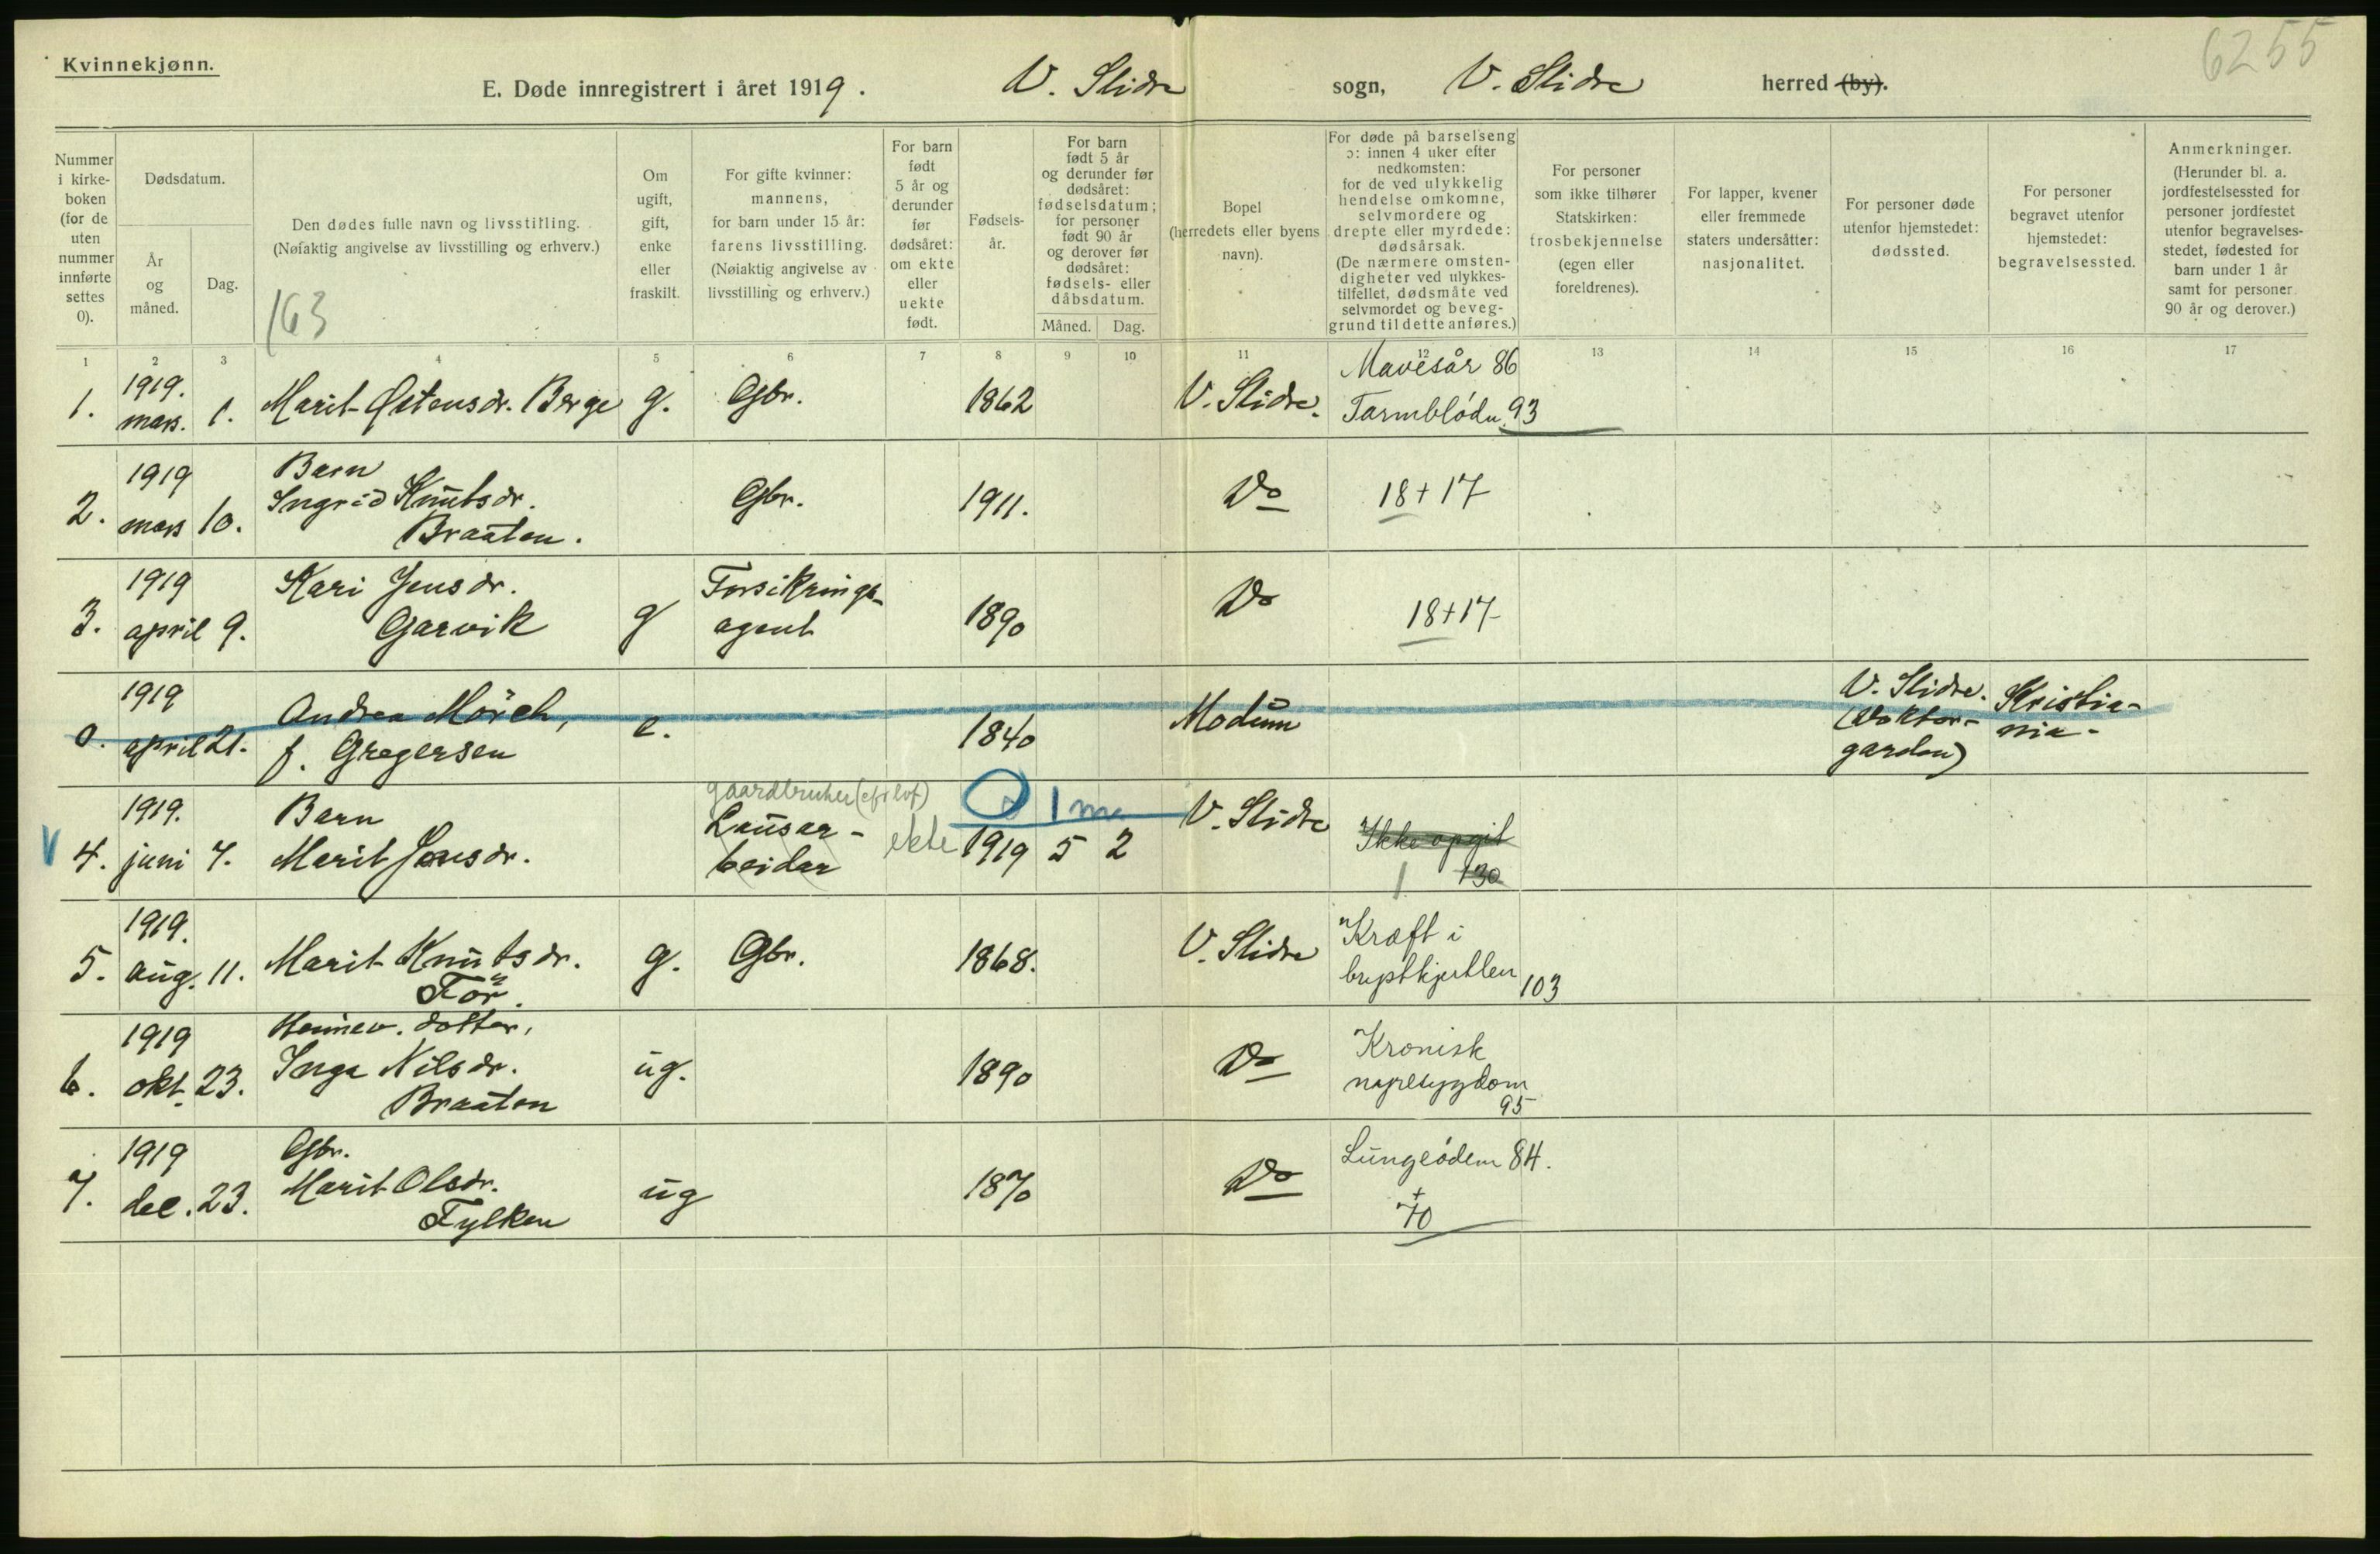 6255
Kvinnekjønn.
E. Døde innregistrert i året 1919. V. Slidre sogn, V. Slidre herred (by).
Nummer i kirke- boken (for de uten nummer innførte settes 0).
Dødsdatum.
År og måned.
Dag.
Den dødes fulle navn og livsstilling.
(Nøiaktig angivelse av livsstilling og erhverv.)
163
Om ugift, gift, enke eller fraskilt.
For gifte kvinner: mannens, for barn under 15 år: farens livsstilling. (Nøiaktig angivelse av livsstilling og erhverv.)
For barn født 5 år og derunder før dødsåret: om ekte eller uekte født.
Fødsels- år.
For barn født 5 år og derunder før dødsåret: fødselsdatum; for personer født 90 år og derover før dødsåret: fødsels- eller dåbsdatum.
Måned. Dag.
Bopel (herredets eller byens navn).
For døde på barselseng ɔ: innen 4 uker efter nedkomsten: for de ved ulykkelig hendelse omkomne, selvmordere og drepte eller myrdede: dødsårsak. (De nærmere omsten- digheter ved ulykkes- tilfellet, dødsmåte ved selvmordet og beveg- grund til dette anføres.)
For personer som ikke tilhører Statskirken: trosbekjennelse (egen eller foreldrenes).
For lapper, kvener eller fremmede staters undersåtter: nasjonalitet.
For personer døde utenfor hjemstedet: dødssted.
For personer begravet utenfor hjemstedet: begravelsessted.
Anmerkninger. (Herunder bl. a. jordfestelsessted for personer jordfestet utenfor begravelses- stedet, fødested for barn under 1 år samt for personer 90 år og derover.)
1 2 3 4 5 6 7 8 9 10 11 12 13 14 15 16 17
1. 1919. mars. 1. Marit Østensdr. Berge g. Gbr. 1862 V. Slidre.
Mavesår 86
Tarmblødn. 93
2. 1919 mars 10. Barn
Ingrid Knutsdr.
Braaten.
Gbr. 1911. Do 18+17
3. 1919 april 9. Kari Jensdr.
Garvik
g Forsikrings-
agent
1890 Do 18+17
0. 1919 april 21. Andrea Mörch,
f. Gregersen
e. 1840 Modum
V. Slidre.
(Doktor-
garden)
Kristia-
nia.
V 4. 1919. juni 7. Barn
Marit Jensdr.
gaardbruker
Lausar-
beidar
ekte 1919 5 2
1 m
V. Slidre
Ikke opgit
1 130
5. 1919. aug. 11. Marit Knutsdr.
För.
g. Gbr. 1868. V. Slidre
Kræft i
brystkjertlen 103
6. 1919 okt. 23. dotter,
Inga Nilsdr.
Braaten
ug. 1890 Do
Kronisk
nyresygdom
95
7. 1919 dec. 23. Gbr.
Marit Olsdr.
Fylken
ug 1870 Do
Lungeödem 84.
+
70